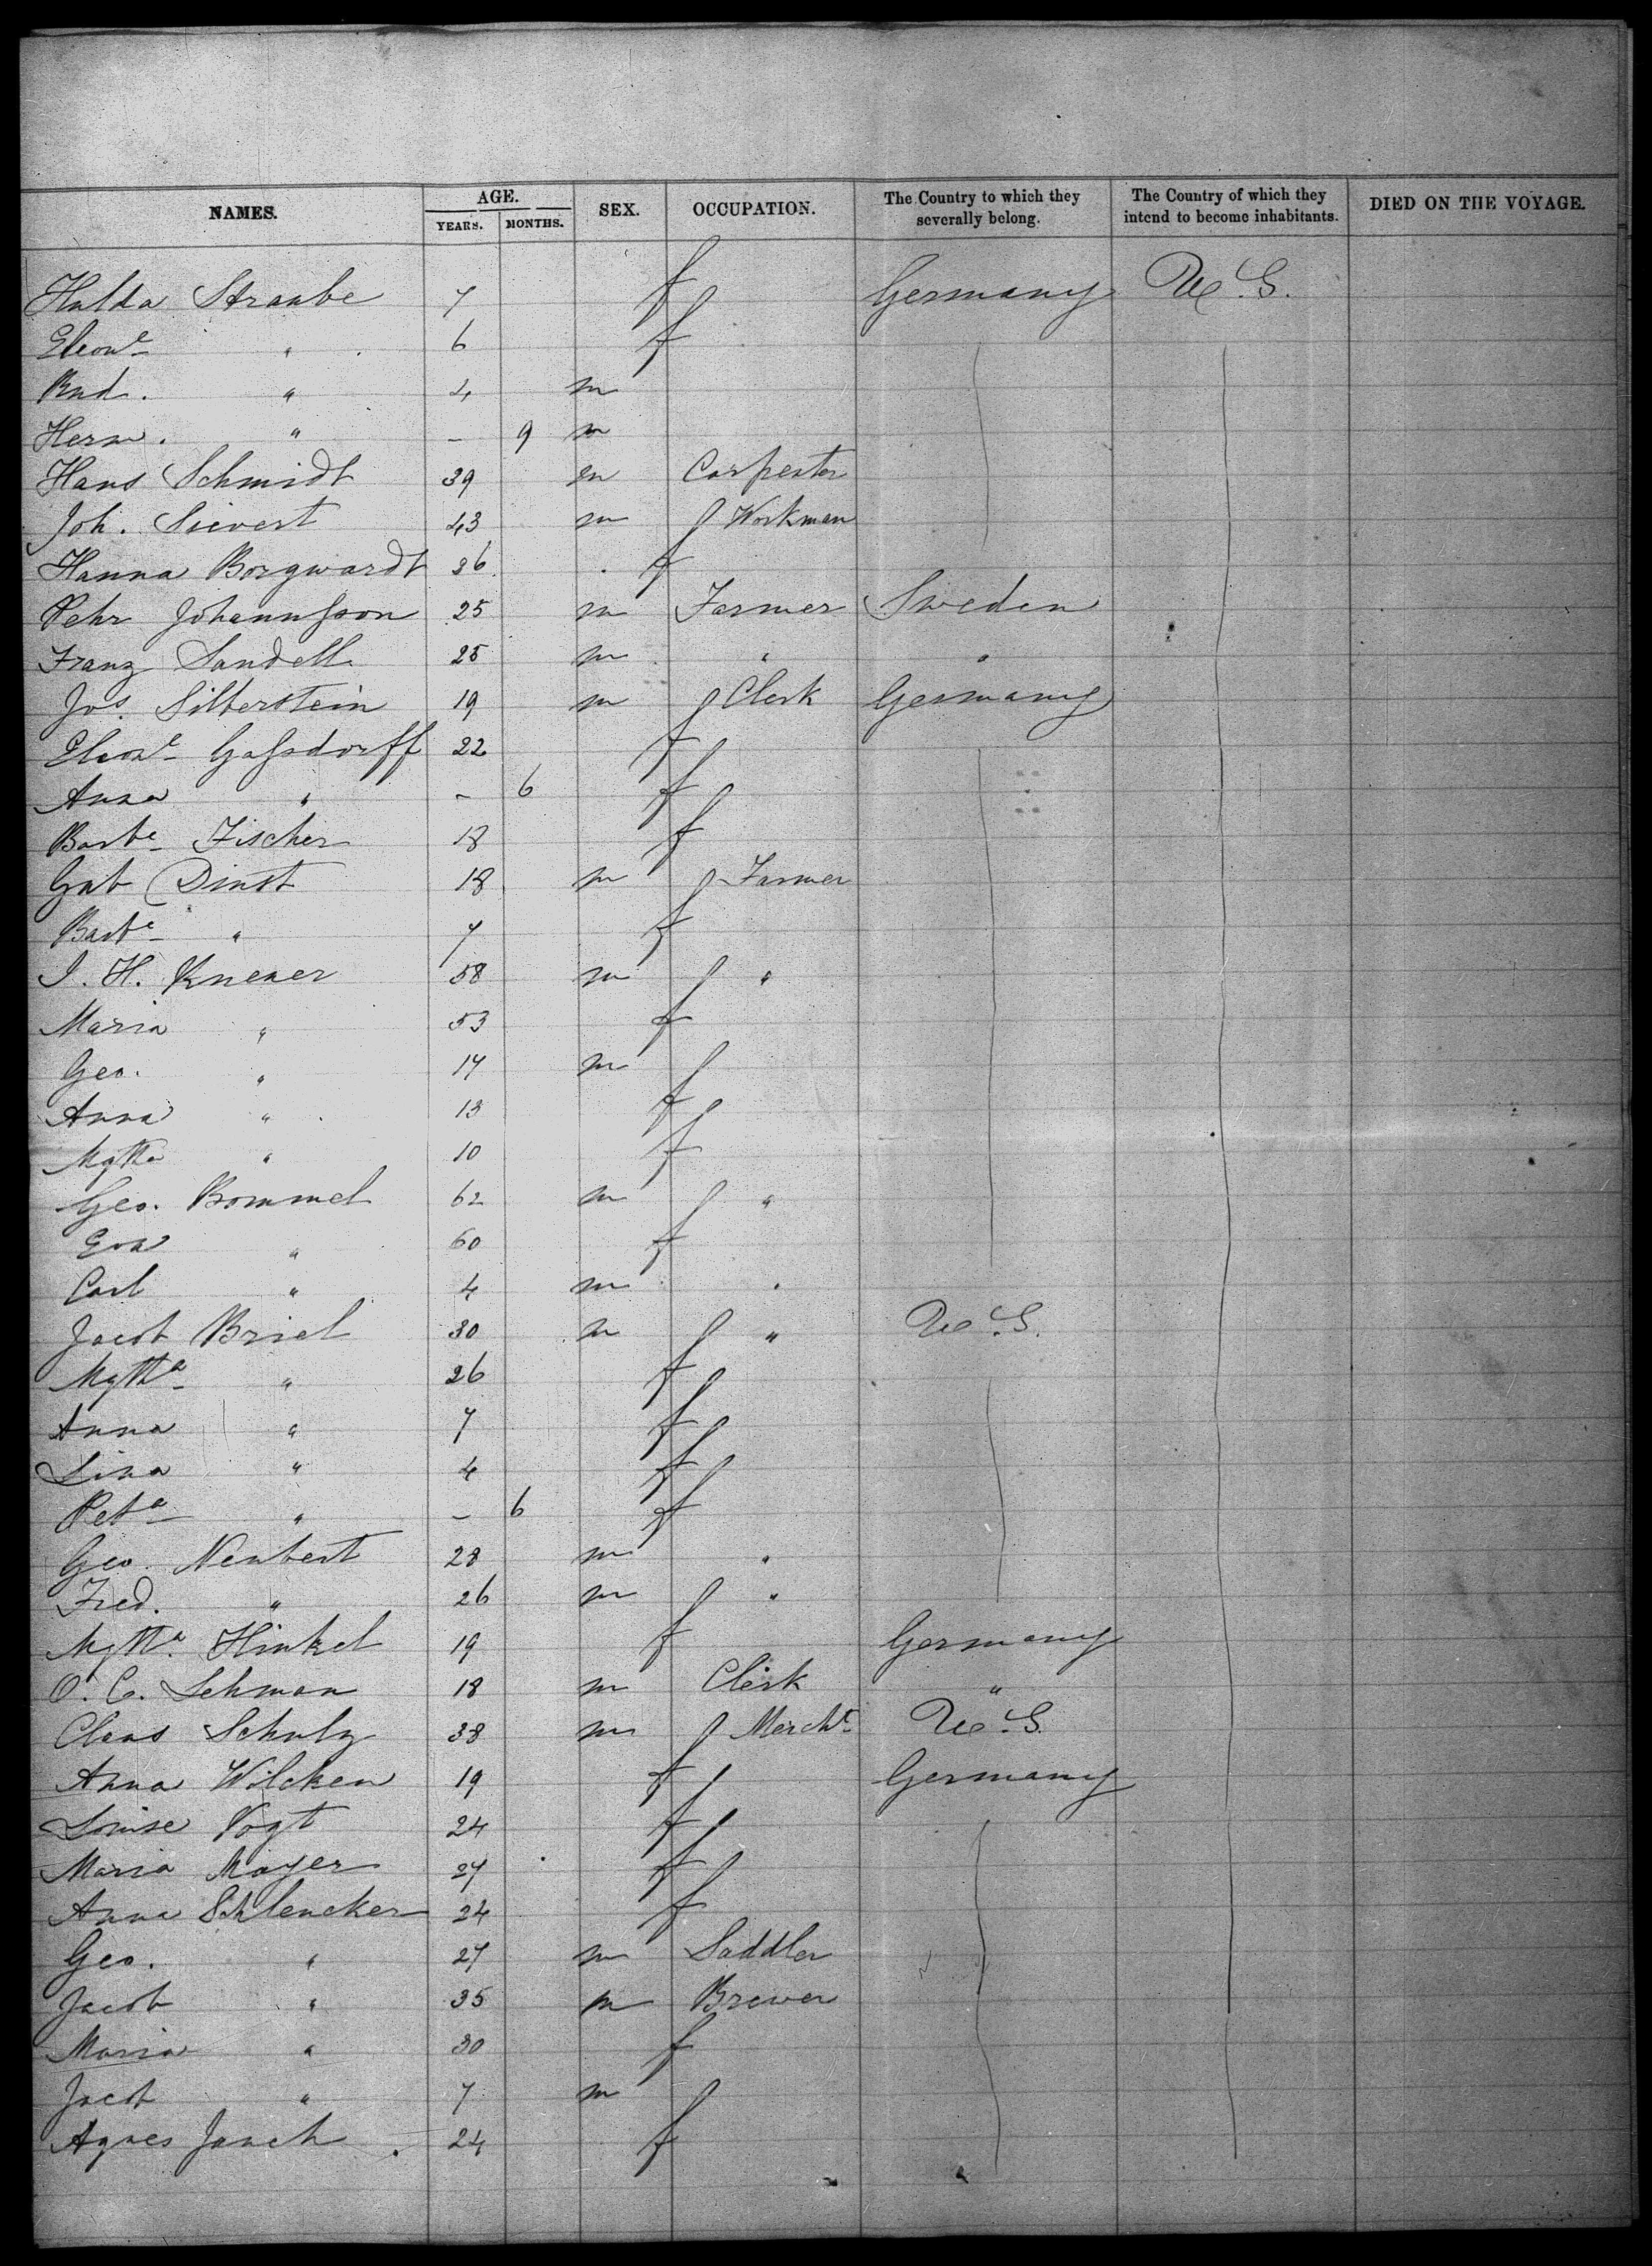 NAMES. AGE. YEARS. MONTHS. SEX. OCCUPATION. The Country to which they severally belong. The Country of which they intend to become inhabitants. DIED ON THE VOYAGE.
Hulda Straube 7 f Germany U.S.
Eleonᵉ " 6 f
Rud. " 4 m
Herm. " – 9 m
Hans Schmidt 39 m Carpenter
Joh. Sievert 43 m Workman
Hanna Borgwardt 36 f
Pehr Johannsson 25 m Farmer Sweden
Franz Sandell 25 m " "
Jos. Silberstein 19 m Clerk Germany
Eleonᵉ Gassdorff 22 f
Anna " – 6 f
Barbᵉ Fischer 18 f
Gab Dinst 18 m Farmer
Barbᵉ " 7 f
J. H. 58 m "
Maria " 53 f
Geo. " 17 m
Anna " 13 f
Mgtha " 10 f
Geo. Bommel 62 m "
Eva " 60 f
Carl " 4 m "
Jacob Briel 30 m " U.S.
Mgthᵃ " 26 f
Anna " 7 f
Lina " 4 f
Petᵃ " – 6 f
Geo. Neubert 28 m "
Fred. " 26 m "
Mgthᵃ. Hinkel 19 f Germany
O. C. Lehman 18 m Clerk "
Claus Schulz 38 m Merchᵗ U.S.
Anna Wilcken 19 f Germany
Louise Vogt 24 f
Maria Mayer 27 f
Anna Schlencker 24 f
Geo. " 27 m Saddler
Jacob " 35 m Brewer
Maria " 30 f
Jacob " 7 m
Agnes Janch 24 f